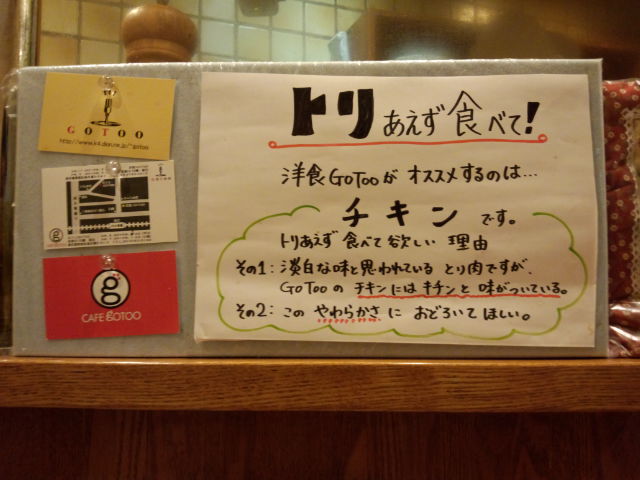 GOTOO
http://www.k4.dion.ne.jp/~gotoo
g
CAFE GOTOO
トリあえず食べて!
洋食GOTOOが オススメするのは…
チキンです。
トリあえず 食べて欲しい 理由
その1: 淡白な味と思われている とり肉ですが、
GOTOOの チキンには キチンと 味がついている。
その2: この やわらかさに おどろいて ほしい。